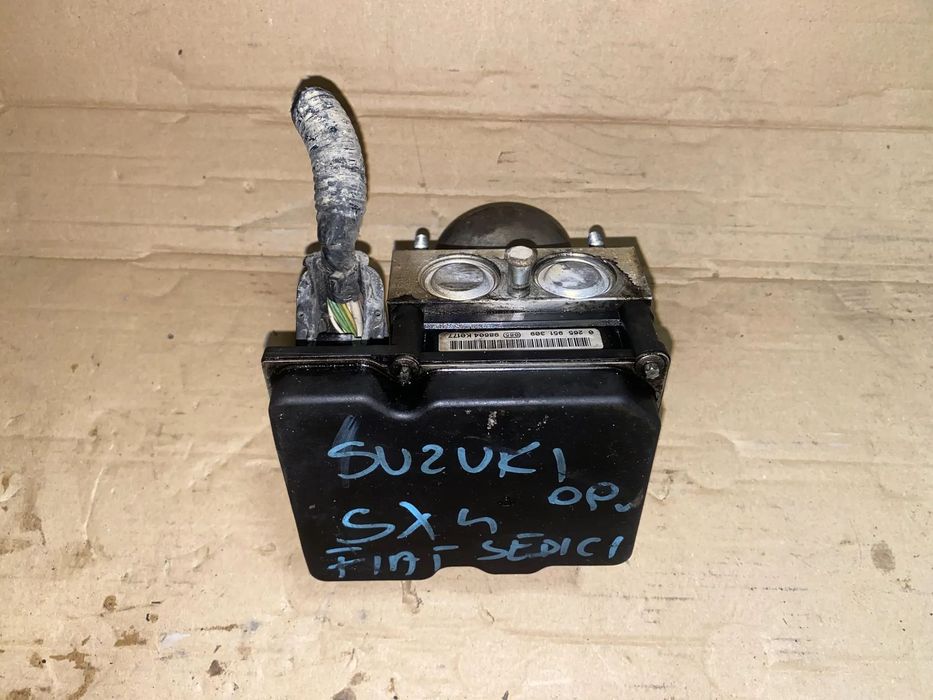 0 265 951 309
SUZUKI
OP.
SX4
FIAT SEDICI